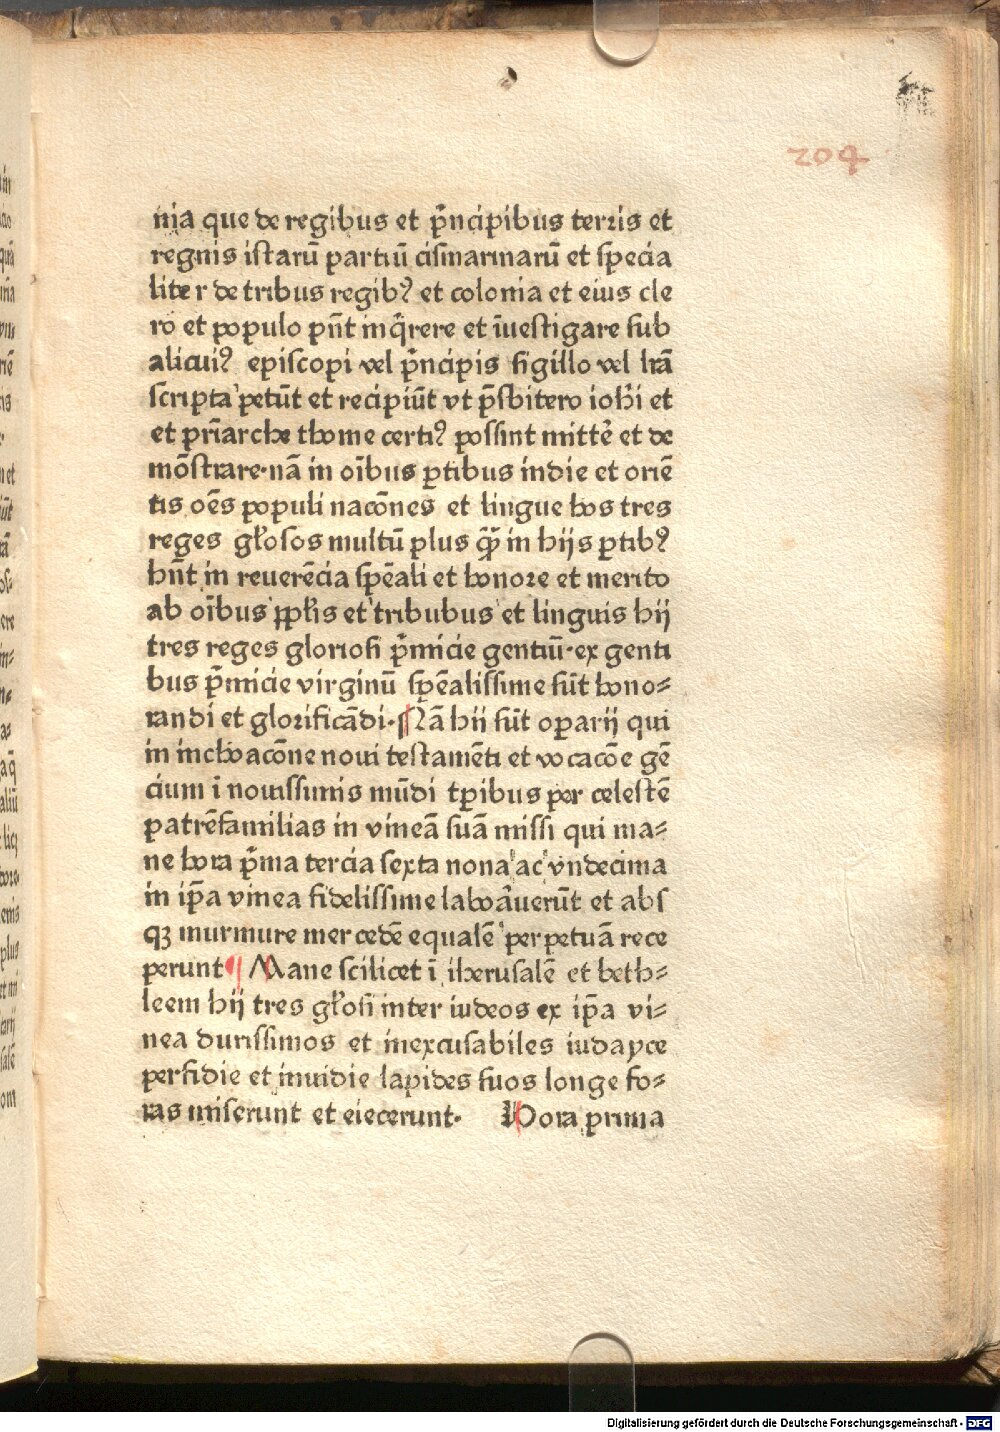 204
nia que de regibus et p̄ncipibus terris et
regnis istarū partiū cismarinarū et specia
liter de tribus regib⁹ et colonia et eius cle
ro et populo pn̄t inq̄rere et īuestigare sub
alicui⁹ episcopi vel p̄ncipis sigillo vel lr̄ā
scripta petūt et recipiūt vt p̄sbitero ioh̄i et
et pr̄iarche thome certi⁹ possint mittē et de
mōstrare·nā in oībus ꝑtibus indie et oriē
tis oēs populi nacōnes et lingue hos tres
reges gl̄osos multū plus qȝ̄ in hijs ꝑtib⁹
hn̄t in reuerēcia spēali et honore et merito
ab oībus ppl̄is et tribubus et linguis hij
tres reges gloriosi p̄micie gentiū·ex genti
bus p̄micie virginū spēalissime sūt hono⸗
randi et glorificādi·Nā hij sūt oꝑarij qui
in inchoacōne noui testamēti et vocacōe gē
cium ī nouissimis mūdi tꝑibus per celestē
patrēfamilias in vineā suā missi qui ma⸗
ne hora p̄ma tercia sexta nona ac vndecima
in ip̄a vinea fidelissime laboāuerūt et abs
qȝ murmure mercedē equalē perpetuā rece
perunt ¶ Mane scilicet ī iherusalē et beth⸗
leem hij tres gl̄osi inter iudeos ex ip̄a vi⸗
nea durissimos et inexcusabiles iudayce
perfidie et inuidie lapides suos longe fo⸗
ras miserunt et eiecerunt· Hora prima
Digitalisierung gefördert durch die Deutsche Forschungsgemeinschaft - DFG